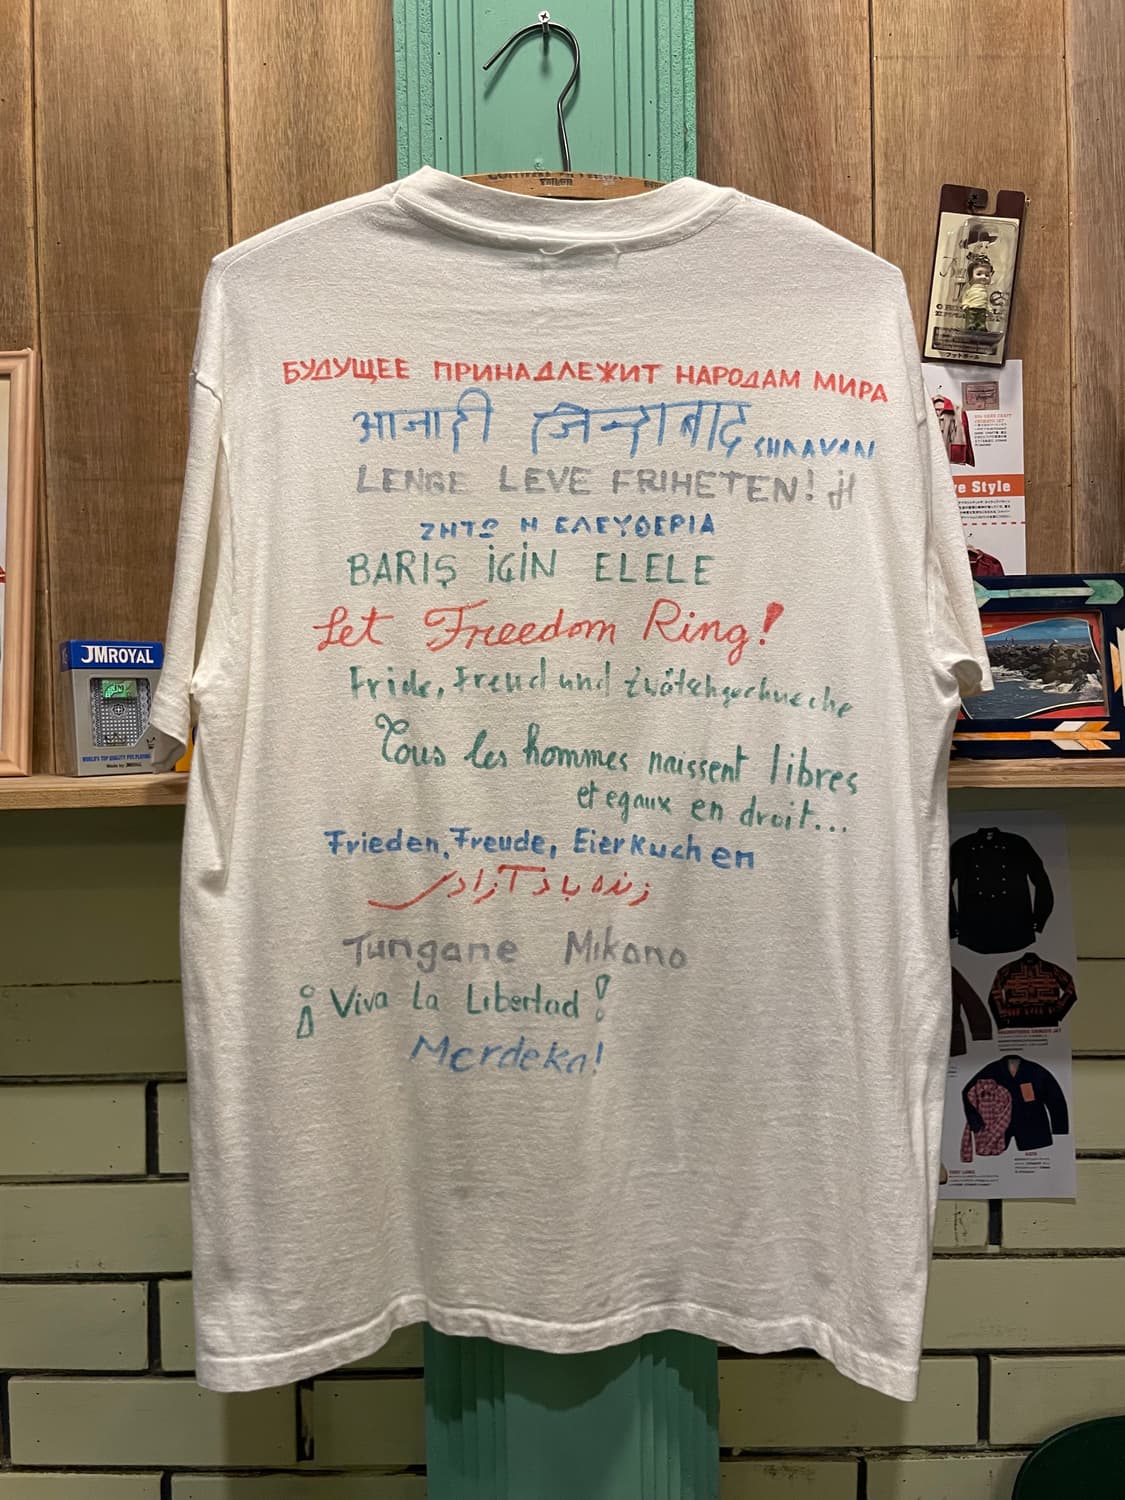 TAILOR
БУДУЩЕЕ ПРИНАДЛЕЖИТ НАРОДАМ МИРА
आजादी जिन्दाबाद SHRAVAN
LENGE LEVE FRIHETEN! jl
ΖΗΤΩ Η ΕΛΕΥΘΕΡΙΑ
BARIŞ İÇİN ELELE
Let Freedom Ring!
Fride, Freud und Zwätschgechueche
Tous les hommes naissent libres
et egaux en droit...
Frieden, Freude, Eierkuchen
زنده باد آزادی
Tungane Mikono
¡Viva La Libertad!
Merdeka!
JMROYAL
WORLD'S TOP QUALITY PVC PLAYING
フットボール
ve Style